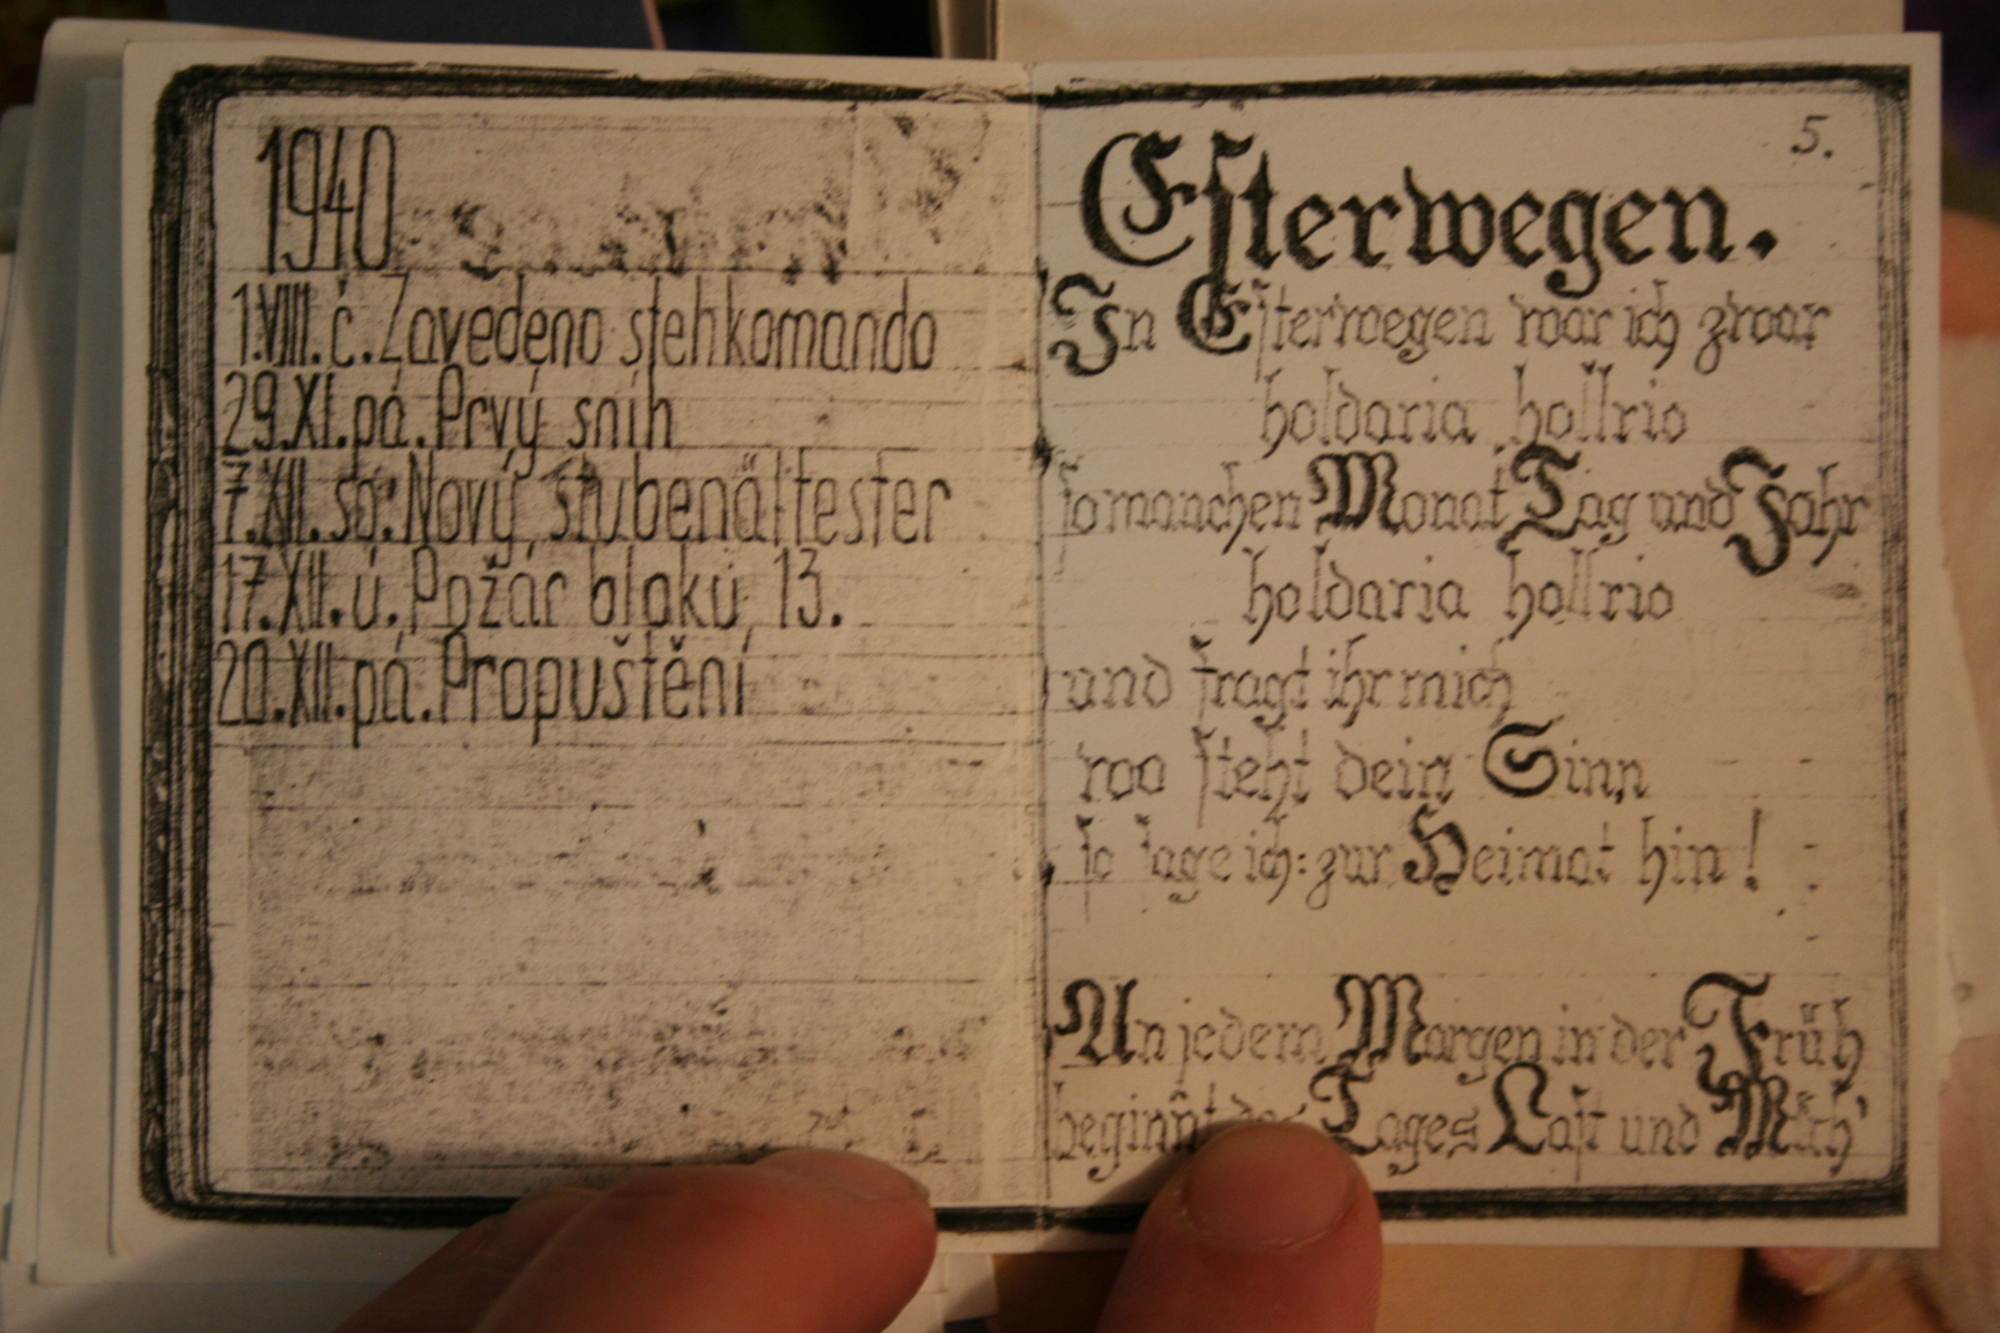 1940
1.VIII.č. Zavedeno stehkomando
29.XI.pá. Prvý sníh
7.XII.so. Nový stubenältester
17.XII.ú. Požár bloku 13.
20.XII.pá. Propuštění
5.
Esterwegen.
In Esterwegen war ich zwar
holdaria hollrio
so manchen Monat Tag und Jahr
holdaria hollrio
und fragt ihr mich
wo steht dein Sinn
so sage ich: zur Heimat hin!
An jedem Morgen in der Früh
beginnt des Tages Last und Müh'